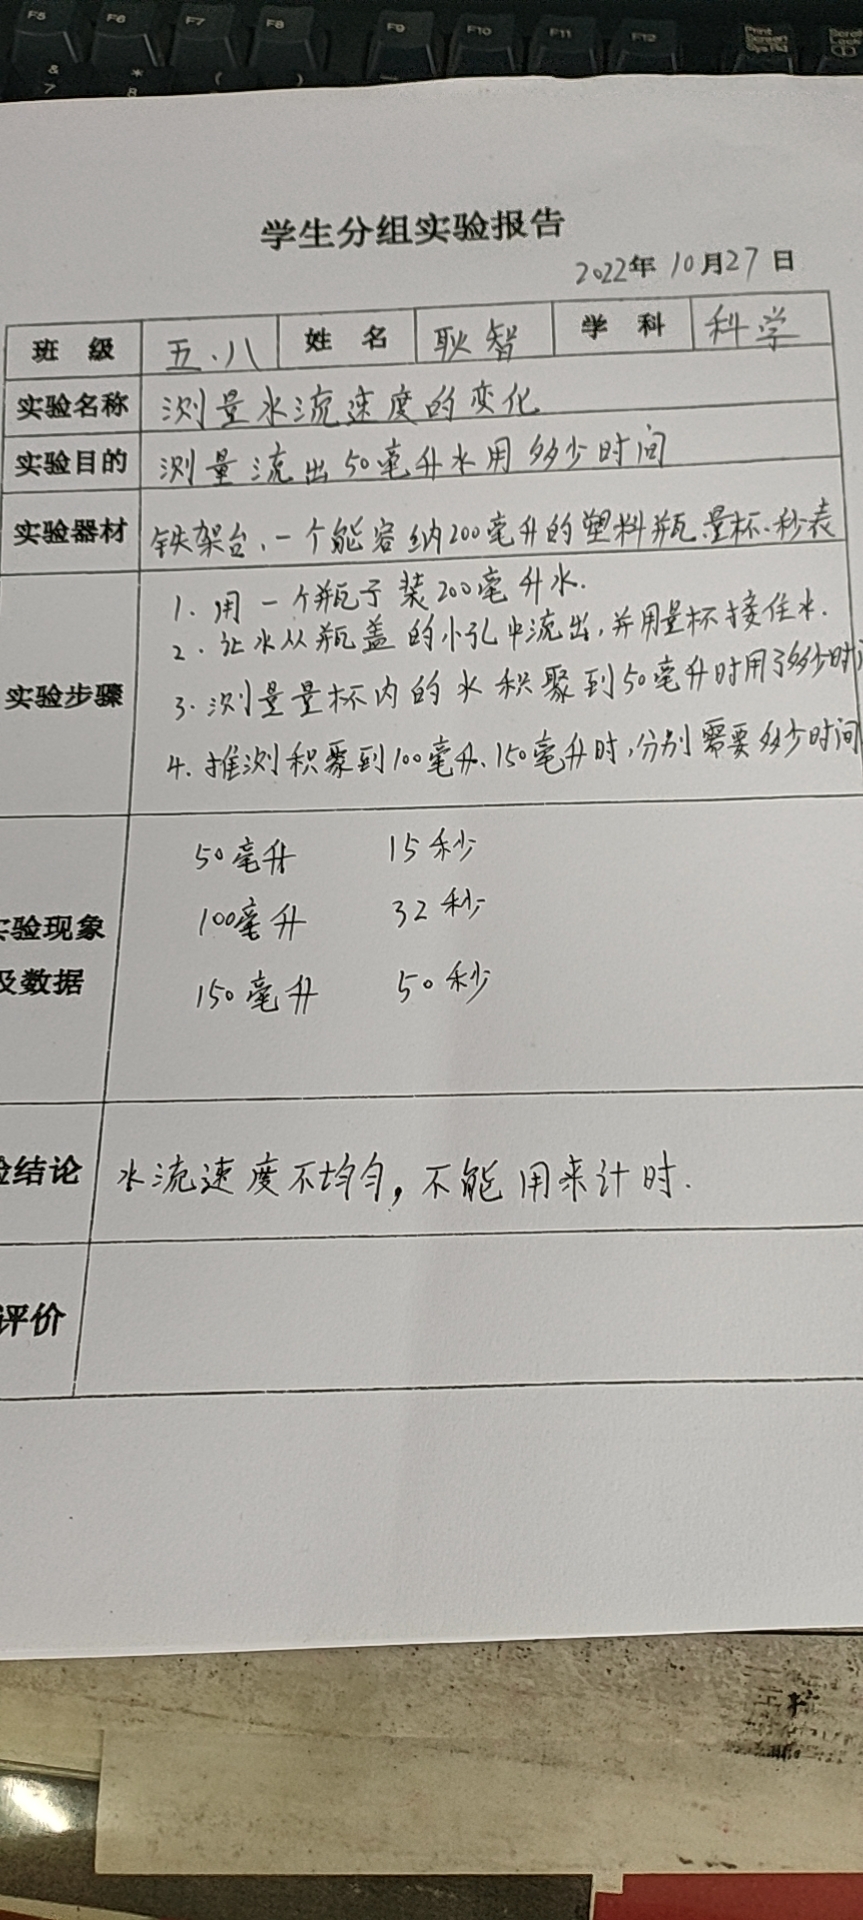 F5 F6 F7 F8 F9 F10 F11 F12 Print Screen SysRq Scroll Lock
& 7 * 8 ( )
学生分组实验报告
2022年10月27日
班 级 五.八 姓 名 耿智 学 科 科学
实验名称 测量水流速度的变化
实验目的 测量流出50毫升水用多少时间
实验器材 铁架台、一个能容纳200毫升的塑料瓶、量杯、秒表
实验步骤
1. 用一个瓶子装200毫升水.
2. 让水从瓶盖的小孔中流出,并用量杯接住水.
3. 测量量杯内的水积聚到50毫升时用了多少时间
4. 推测积聚到100毫升、150毫升时,分别需要多少时间
实验现象
及数据
50毫升 15秒
100毫升 32秒
150毫升 50秒
验结论 水流速度不均匀,不能用来计时.
评价